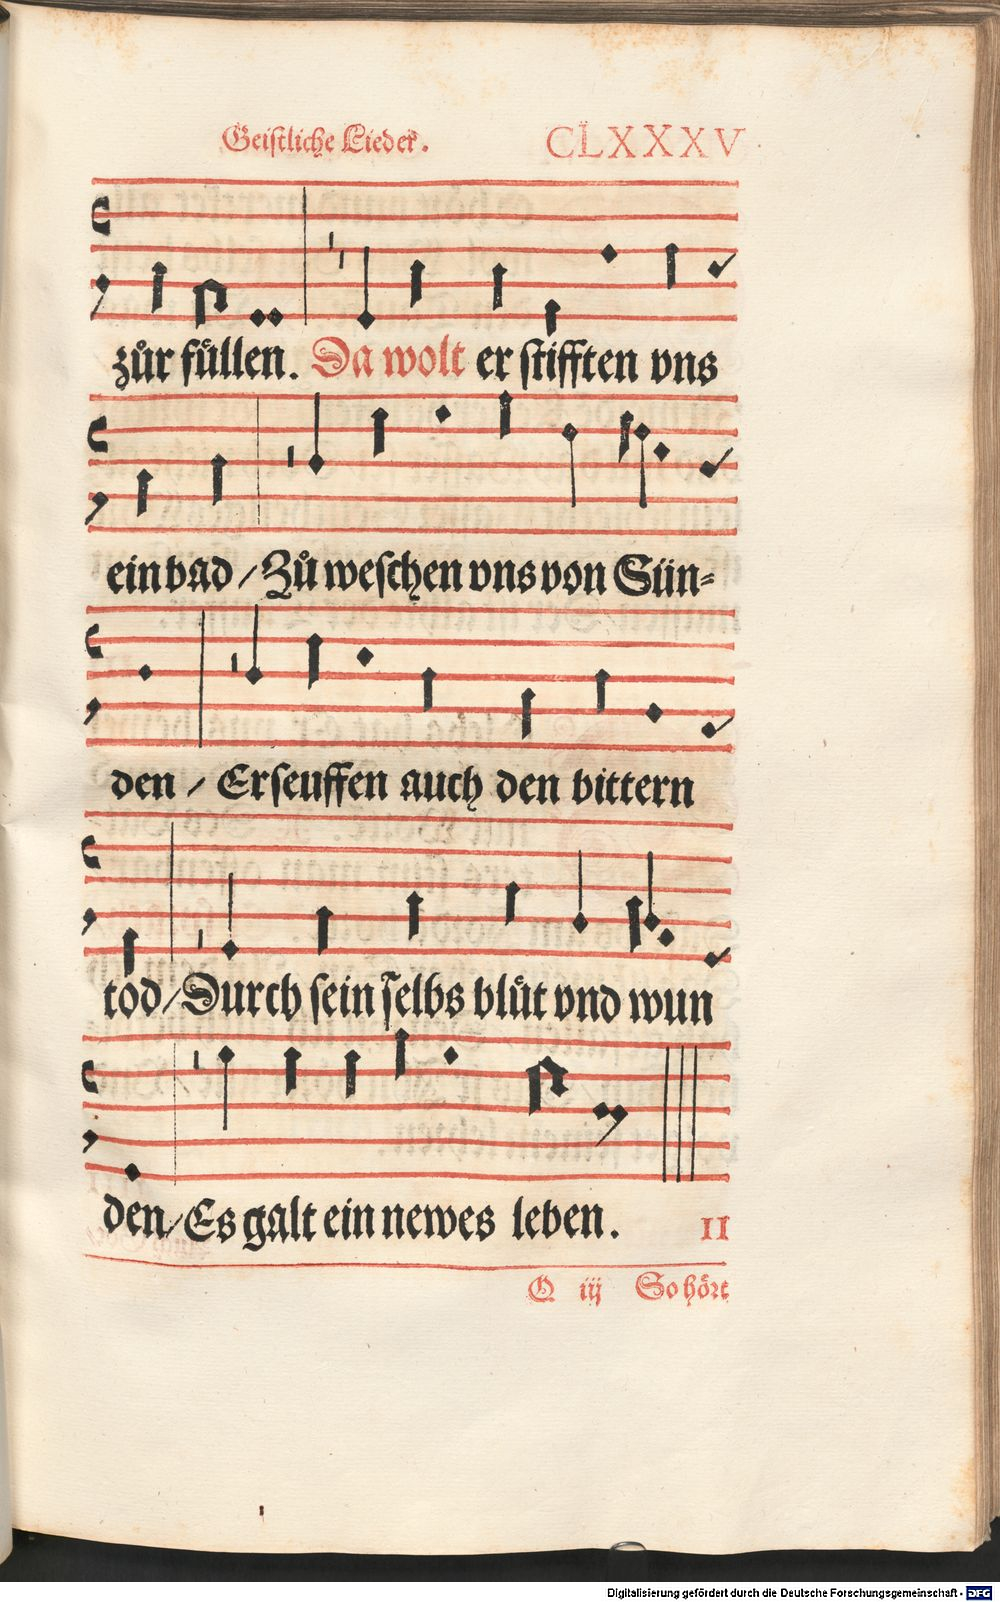 Geistliche Lieder. CLXXXV
zůr füllen. Da wolt er stifften vns
ein bad / Zů weschen vns von Sün-
den / Erseuffen auch den bittern
tod / Durch sein selbs blůt vnd wun
den / Es galt ein newes leben. II
Q iij So hört
Digitalisierung gefördert durch die Deutsche Forschungsgemeinschaft - DFG